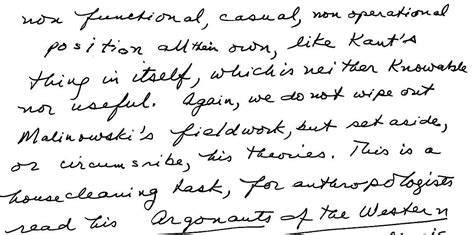 non functional, casual, non operational
position all their own, like Kant's
thing in itself, which is neither knowable
nor useful. Again, we do not wipe out
Malinowski's fieldwork, but set aside,
or circumsribe, his theories. This is a
housecleaning task, for anthropologists
read his Argonauts of the Western